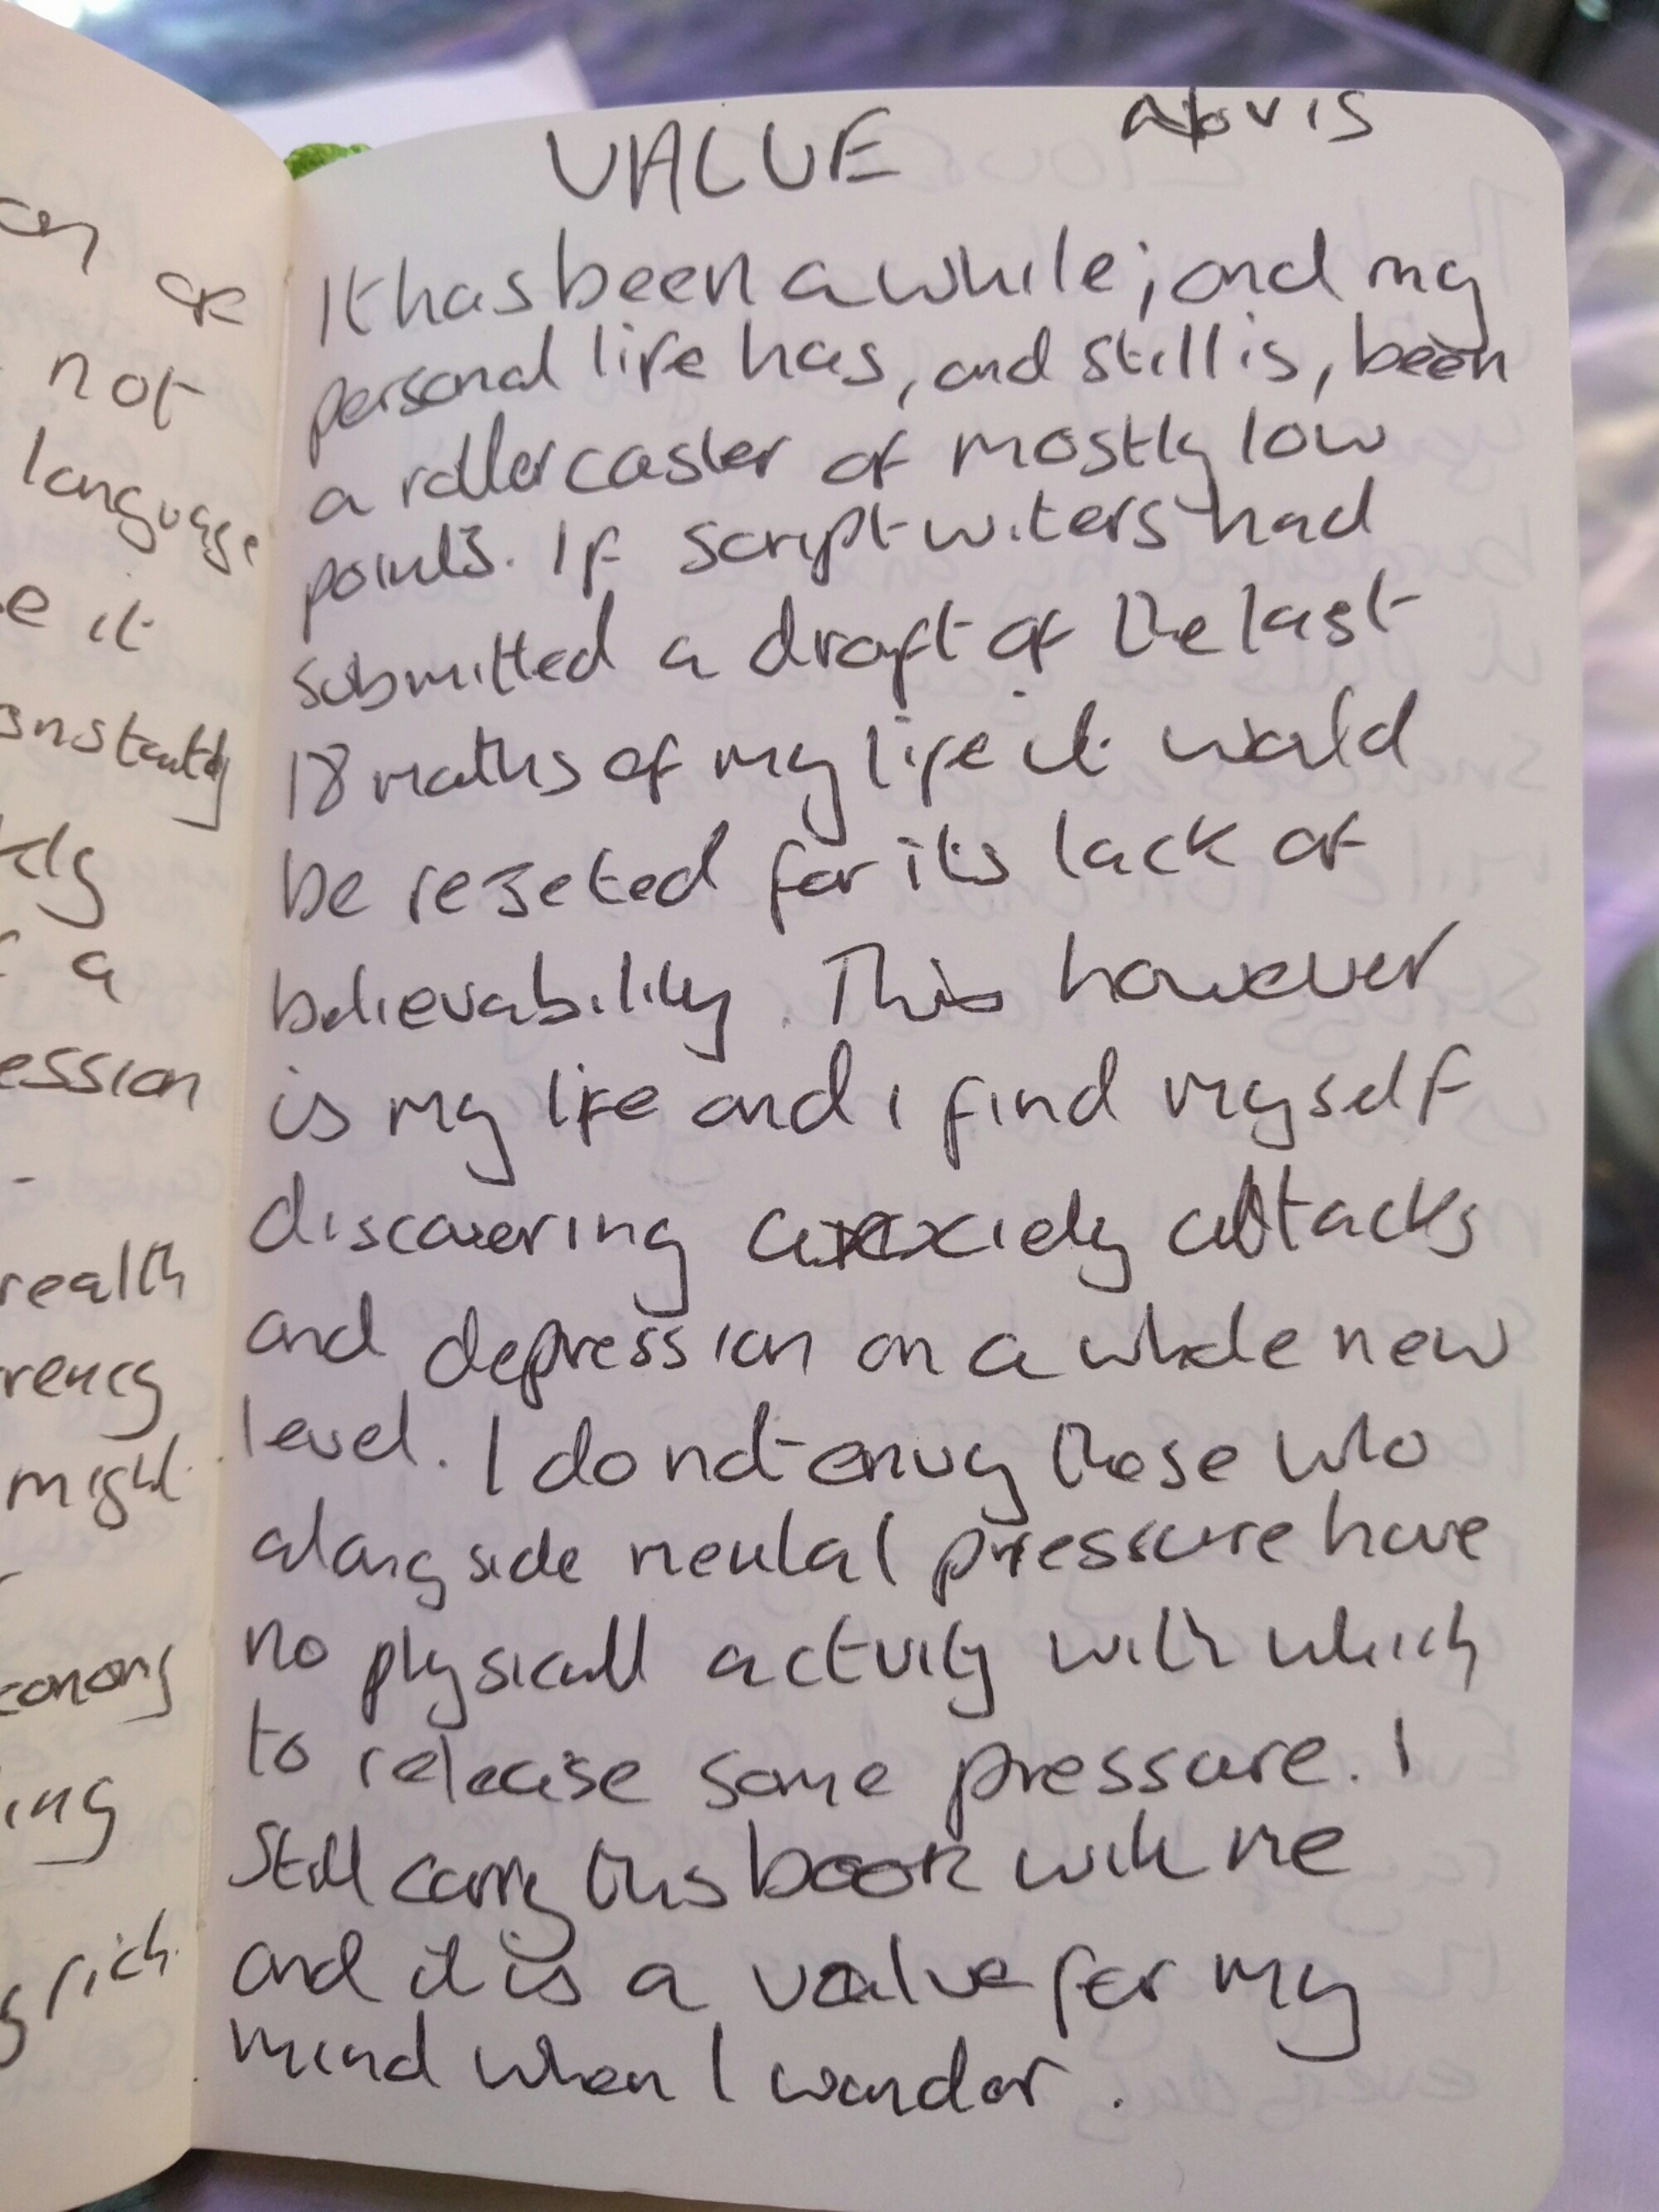 not
language
it
a
might
rich
VALUE Nov 15
It has been a while; and my
personal life has, and still is, been
a rollercoaster of mostly low
points. If scriptwriters had
submitted a draft of the last
18 months of my life it would
be rejected for its lack of
believability. This however
is my life and i find myself
discovering anxiety attacks
and depression on a whole new
level. I do not envy those who
alongside mental pressure have
no physicall activity with which
to release some pressure. I
still carry this book with me
and it is a value for my
mind when I wander.